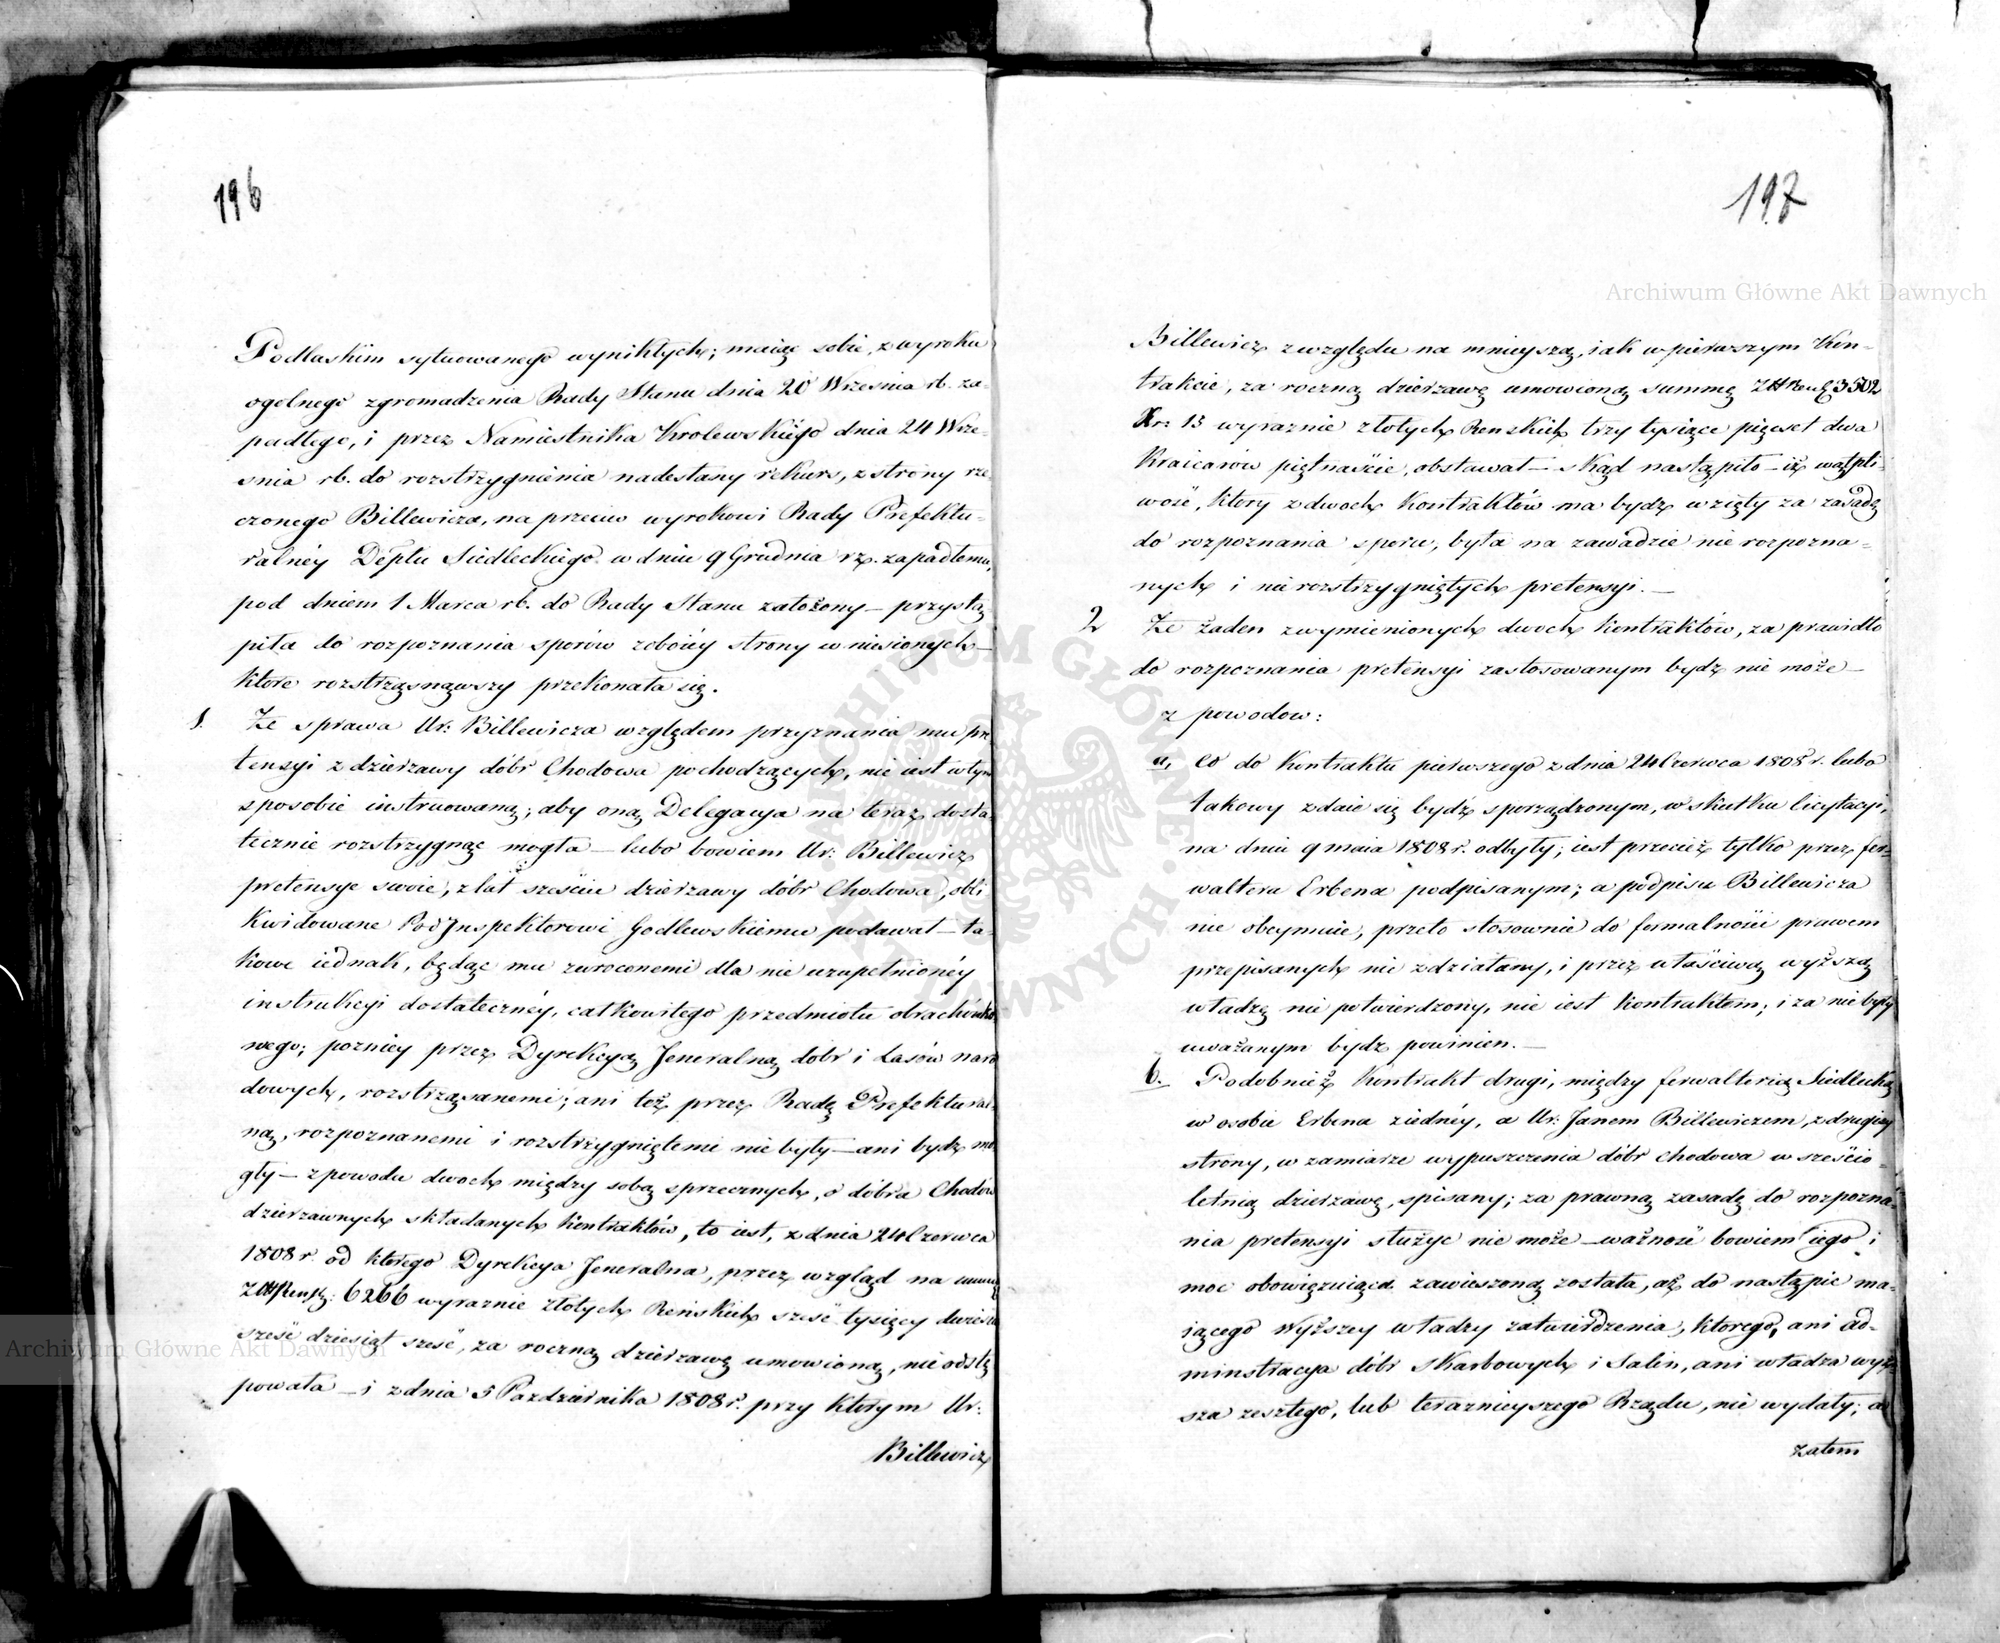 196
Podlaskim sytuowanego wynikłych; maiąc sobie, z wyroku
ogolnego zgromadzenia Rady Stanu dnia 20 Wrzesnia rb. za-
padłego, i przez Namiestnika Krolewskiego dnia 24 Wrze-
snia rb. do rozstrzygnienia nadesłany rekurs, z strony rze-
czonego Billewicza, na przeciw wyrokowi Rady Prefektu-
ralnéy Deptu Siedleckiego w dniu 9 Grudnia rz. zapadłemu,
pod dniem 1 Marca rb. do Rady Stanu założony – przystą-
piła do rozpoznania sporów z obóiéy strony wniesionych –
ktore rozstrząsnąwszy przekonała się.
1. Że sprawa Ur: Billewicza względem przyznania mu pre-
tensyi z dzierzawy dóbr Chodowa pochodzących, nie iest w tym
sposobie instruowaną; aby oną Delegacya na teraz dosta-
tecznie rozstrzygnąc mogła – lubo bowiem Ur: Billewicz
pretensye swoie, z lat sześciu dzierzawy dóbr Chodowa, obli-
kwidowane PodInspektorowi Godlewskiemu podawał – ta-
kowe iednak, będąc mu zwroconemi dla nie uzupełnionéy
instrukcyi dostatecznéy, całkowitego przedmiotu obrachunko-
wego; poznieÿ przez Dyrekcyą Jeneralną dóbr i Lasów naro-
dowych, rozstrząsanemi; ani też przez Radę Prefektural-
ną, rozpoznanemi i rozstrzygniętemi nie były – ani bydz mo-
gły – z powodu dwoch między sobą sprzecznych, o dobra Chodów
dzierzawnych składanych kontraktów, to iest, z dnia 24 Czerwca
1808 r. od ktorego Dyrekcya Jeneralna, przez wzgląd na summę
Zł Reńs: 6266 wyraznie złotych Reńskich sześć tysięcy dwieście
sześć dziesiąt sześć, za roczną dzierzawę umowioną, nie odstę-
powała – i z dnia 5 Pazdziernika 1808 r. przy ktorym Ur:
Billewicz
197
Archiwum Główne Akt Dawnych
Billewicz z względu na mnieyszą, iak w pierwszym Kon-
trakcie, za roczną dzierzawę umowioną summę Zł Reńs 3502
Kr: 15 wyraznie złotych Renskich trzy tysiące pięcset dwa
Kraicarów piętnaście, obstawał – skąd nastąpiło – iż wątpli-
wość, ktory z dwoch Kontraktów ma bydz wzięty za zasadę
do rozpoznania sporu, była na zawadzie nie rozpozna-
nych i nie rozstrzygniętych pretensyi. –
2 Że żaden z wymienionych dwoch kontraktów, za prawidło
do rozpoznania pretensyi zastosowanym bydz nie może –
z powodow:
a, Co do Kontraktu pierwszego z dnia 24 Czerwca 1808 r. lubo
takowy zdaie się bydź sporządzonym, w skutku licytacyi,
na dniu 9 maia 1808 r. odbyty; iest przecież tylko przez fer-
waltera Erbena podpisanym; a podpisu Billewicza
nie obeymuie, przeto stosownie do formalności prawem
przepisanych nie zdziałany, i przez właściwą wyższą
władzę nie potwierdzony, nie iest kontraktem; i za niebyły
uważanym bydz powinien. –
b. Podobnież Kontrakt drugi, między ferwalterią Siedlecką
w osobie Erbena z iednéy, a Ur: Janem Billewiczem, z drugiey
strony, w zamiarze wypuszczenia dóbr Chodowa w sześcio-
letnią dzierzawę, spisany; za prawną zasadę do rozpozna-
nia pretensyi służyc nie może – ważność bowiem iego i
moc obowięzuiąca zawieszoną została, aż do nastąpic ma-
iącego Wyższey władzy zatwierdzenia, ktorego, ani ad-
minstracya dóbr Skarbowych i Salin, ani władza wyż-
sza zeszłego, lub teraznieyszego Rządu, nie wydały; a
zatem
Archiwum Główne Akt Dawnych
ARCHIWUM GŁÓWNE AKT DAWNYCH